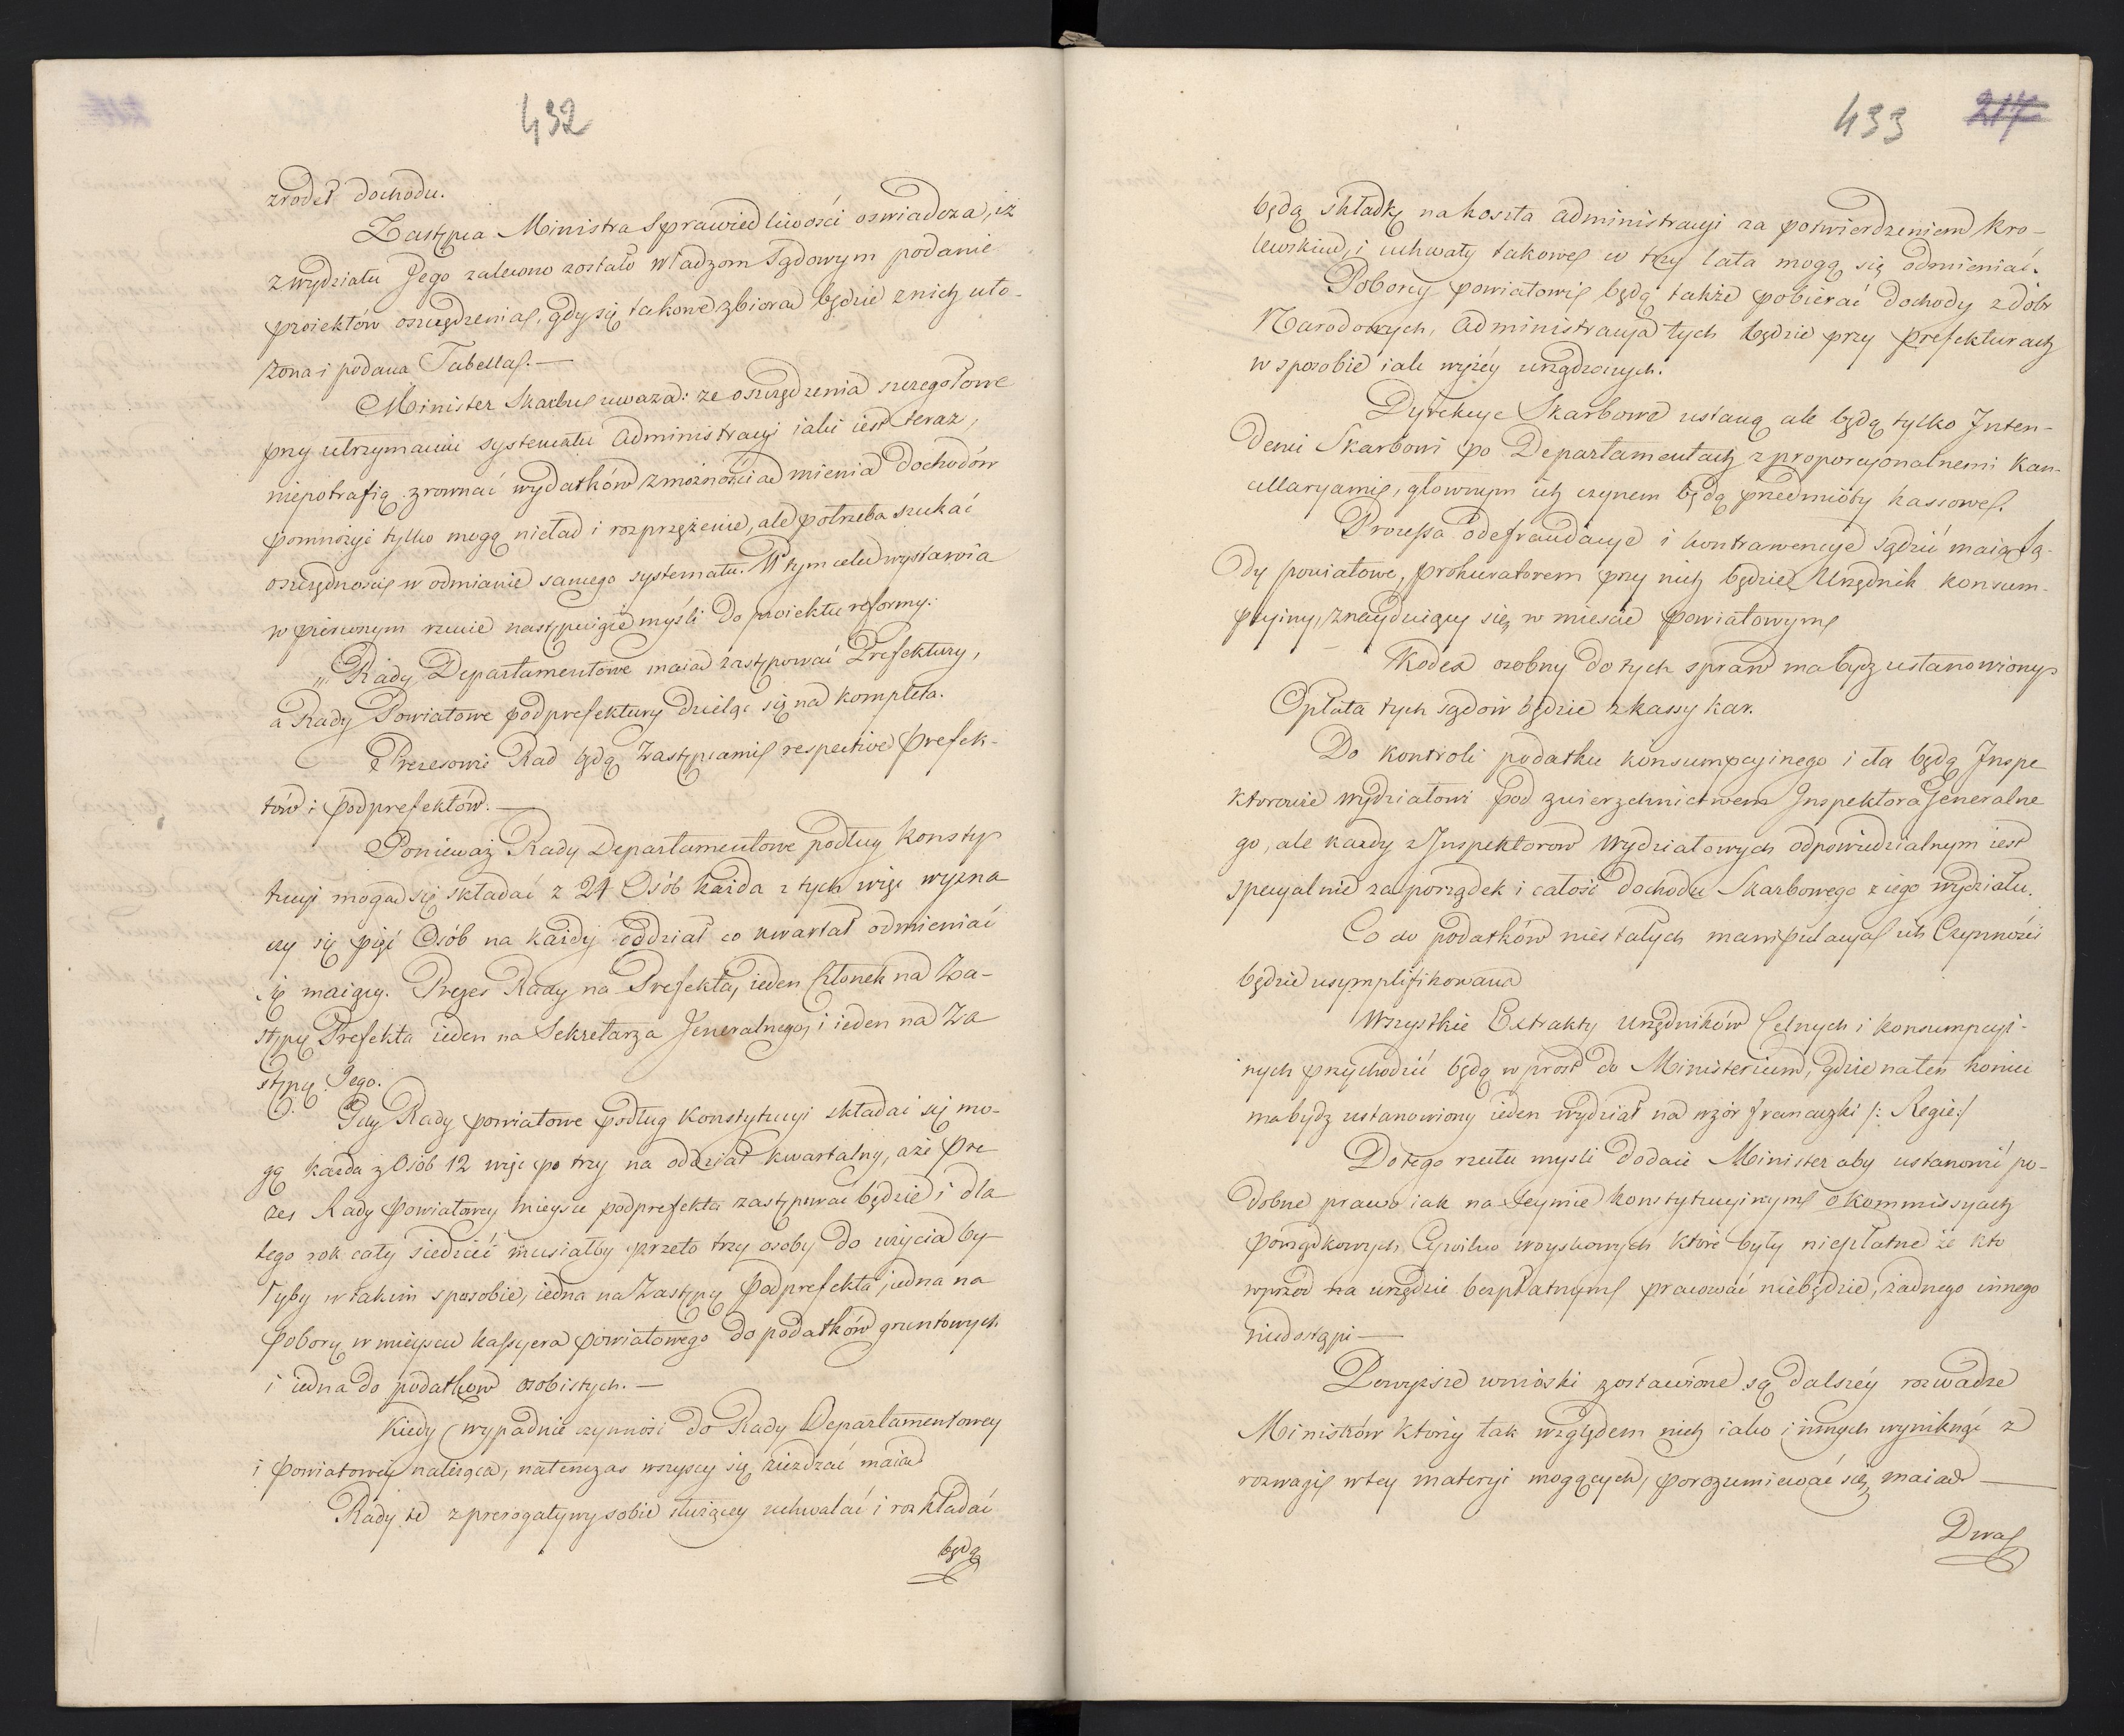 432
zrodeł dochodu.
Zastępca Ministra Sprawiedliwości oswiadcza, iż
z wydziału Jego zalecono zostało Władzom Sądowym podanie
proiektów oszczędzenia, gdy się takowe zbiorą będzie z nich uło-
żona i podana Tabella. —
Minister Skarbu uwaza: że oszczędzenia szczegołowe
przy utrzymaniu systematu administracyi iaki iest teraz,
niepotrafią zrownać wydatków z możnością mienia dochodów
pomnożyć tylko mogą nieład i rozprzężenie, ale potrzeba szukać
oszczędności w odmianie samego systematu. W tym celu wystawia
w pierwszym rzucie następuiące myśli do proiektu reformy.
„Rady Departamentowe maią zastępować Prefektury,
a Rady Powiatowe podprefektury dzieląc się na komplета.
Prezesowie Rad będą Zastępcami respective Prefek-
tów i podprefektów. —
Ponieważ Rady Departamentowe podług Konsty
tucyi mogą się składać z 24 Osób każda z tych więc wyzna
czy się pięć Osób na każdy oddział co kwartał odmieniać
się maiący. Prezes Rady na Prefekta, ieden Członek na Za-
stępcę Prefekta ieden na Sekretarza Jeneralnego, i ieden na Za
stępcę Jego.
Gdy Rady powiatowe podług Konstytucyi składać się mo-
gą każda z Osób 12 więc po trzy na oddział kwartalny, a że Pre
zes Rady Powiatowey mieysce podprefekta zastępować będzie i dla
tego rok cały siedzieć musiałby przeto trzy osoby do użycia by-
łyby w takim sposobie, iedna na Zastępcę Podprefekta, iedna na
Poborcę w mieyscu kassyera powiatowego do podatków gruntowych
i iedna do podatkow osobistych. —
Kiedy wypadnie czynność do Rady Departamentowey
i Powiatowey należąca, natenczas wszyscy się ziezdzać maią
Rady te z prerogatywy sobie służącey uchwalać i rozkładać
będą
433 217
będą składkę na koszta administracyi za potwierdzeniem Kro-
lewskim, i uchwały takowe w trzy lata mogą się odmieniać.
Poborcy powiatowi będą także pobierać dochody z dóbr
Narodowych, administracya tych będzie przy Prefekturach
w sposobie iak wyżéy urządzonych.
Dyrekcye Skarbowe ustaną ale będą tylko Inten-
denci Skarbowi po Departamentach z proporcyonalnemi Kan-
cellaryami, głownym ich czynem będą przedmioty kassowe.
Processa o defraudacye i kontrawencye sądzić maią Są-
dy powiatowe, prokuratorem przy nich będzie Urzędnik konsum-
pcyiny, znayduiący się, w miescie powiatowym
Kodex osobny do tych spraw ma bydz ustanowiony
Opłata tych sądów będzie z kassy kar.
Do kontroli podatku konsumpcyinego i cła będą Inspe
ktorowie wydziałowi pod zwierzchnictwem Inspektora Generalne
go, ale kazdy z Inspektorow Wydziałowych odpowiedzialnym iest
specyalnie za porządek i całość dochodu Skarbowego z iego wydziału.
Co do podatków niestałych manipulacya ich Czynności
będzie usymplifikowana
Wszystkie Extrakty Urzędników Celnych i konsumpcyi-
nych przychodzić będą wprost do Ministerium, gdzie na ten koniec
ma bydz ustanowiony ieden wydział na wzór francuzki /: Regie:/
Do tego rzutu mysli dodaie Minister aby ustanowić po-
dobne prawo iak na Seymie konstytucyinym o kommissyach
porządkowych Cywilno woyskowych które były niepłatne że kto
wprzód na urzędzie bezpłatnym pracować niebędzie, żadnego innego
niedostąpi —
Powyższe wnioski zostawione są dalszéy rozwadze
Ministrów którzy tak względem nich iako i innych wyniknąć z
rozwagi w tey materyi mogących, porozumiewać się, maią. —
Dwa